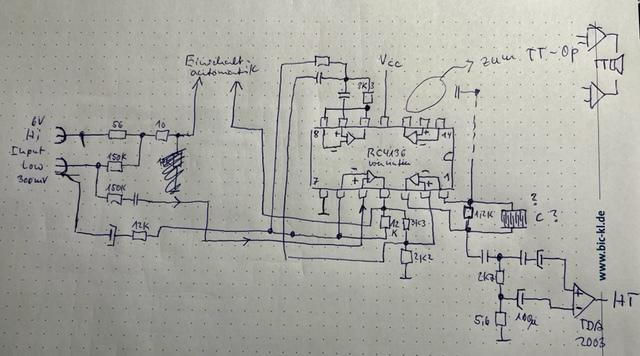 Einschalt-
automatik
Vcc
zum TT-Op
TT
3K3
6V
Hi
Input
Low
300mV
56
10
150K
150K
12K
8
14
RC4136
7
1
12
K
3K3
2K2
1,2K
?
C ?
2K7
5,6
100µ
TDA
2003
HT
www.bic-kl.de